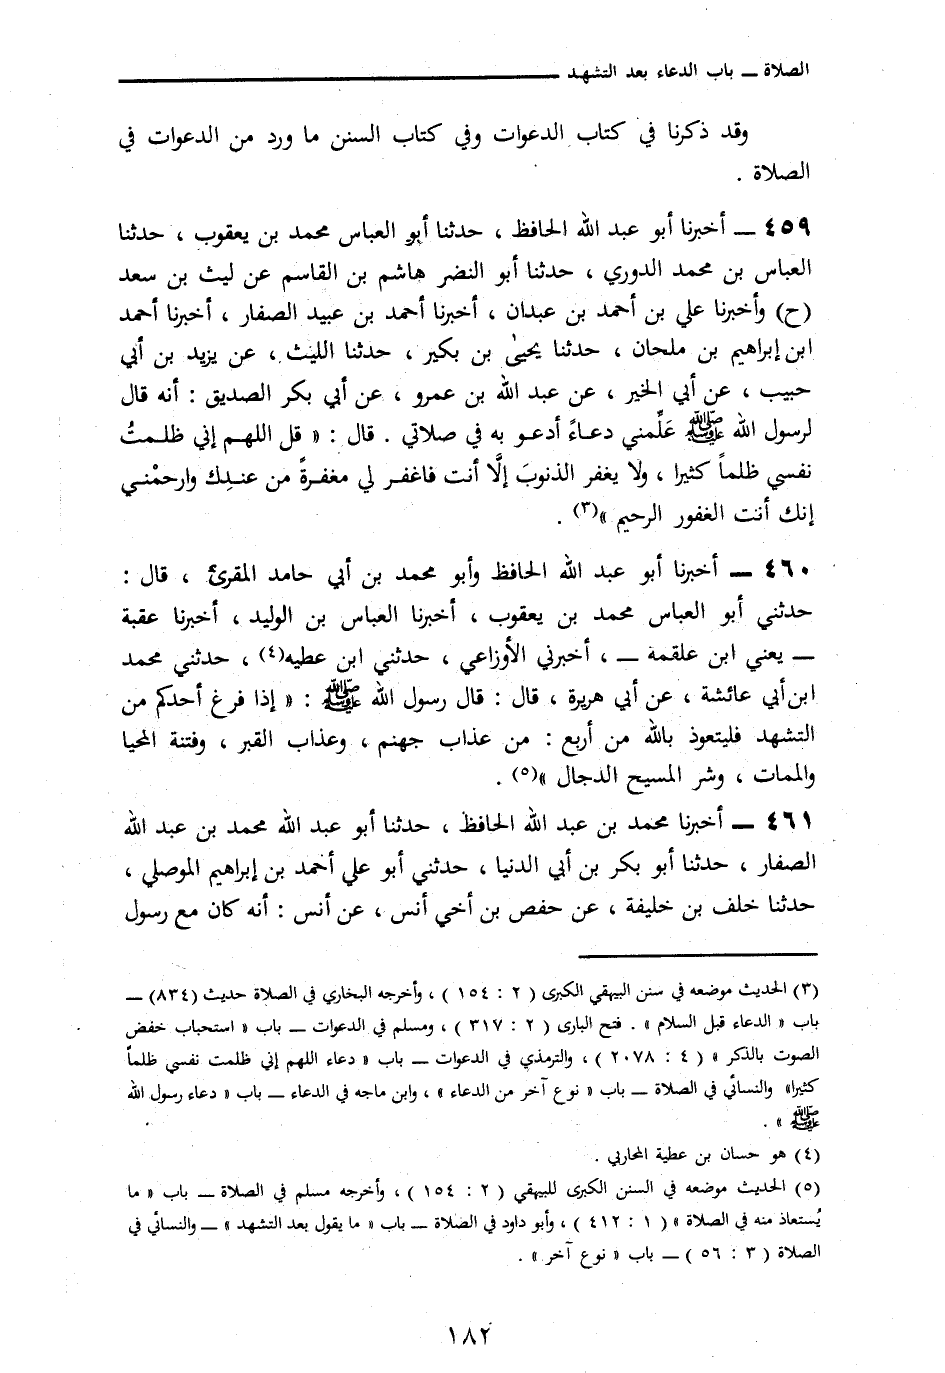 الصلاة ــ باب الدعاء بعد التشهد
وقد ذكرنا في كتاب الدعوات وفي كتاب السنن ما ورد من الدعوات في
الصلاة .
٤٥٩ ــ أخبرنا أبو عبد الله الحافظ ، حدثنا أبو العباس محمد بن يعقوب ، حدثنا
العباس بن محمد الدوري ، حدثنا أبو النضر هاشم بن القاسم عن ليث بن سعد
(ح) وأخبرنا علي بن أحمد بن عبدان ، أخبرنا أحمد بن عبيد الصفار ، أخبرنا أحمد
ابن إبراهيم بن ملحان ، حدثنا يحيىٰ بن بكير ، حدثنا الليث ، عن يزيد بن أبي
حبيب ، عن أبي الخير ، عن عبد الله بن عمرو ، عن أبي بكر الصديق : أنه قال
لرسول الله ﷺ علِّمني دعاءً أدعو به في صلاتي . قال : « قل اللهم إني ظلمتُ
نفسي ظلماً كثيرا ، ولا يغفر الذنوبَ إلَّا أنت فاغفر لي مغفرةً من عندِك وارحمْني
إنك أنت الغفور الرحيم »(٣) .
٤٦٠ ــ أخبرنا أبو عبد الله الحافظ وأبو محمد بن أبي حامد المقرئ ، قال :
حدثني أبو العباس محمد بن يعقوب ، أخبرنا العباس بن الوليد ، أخبرنا عقبة
ــ يعني ابن علقمة ــ ، أخبرني الأوزاعي ، حدثني ابن عطيه(٤) ، حدثني محمد
ابن أبي عائشة ، عن أبي هريرة ، قال : قال رسول الله ﷺ : « إذا فرغ أحدكم من
التشهد فليتعوذ بالله من أربع : من عذاب جهنم ، وعذاب القبر ، وفتنة المحيا
والممات ، وشر المسيح الدجال »(٥) .
٤٦١ ــ أخبرنا محمد بن عبد الله الحافظ ، حدثنا أبو عبد الله محمد بن عبد الله
الصفار ، حدثنا أبو بكر بن أبي الدنيا ، حدثني أبو علي أحمد بن إبراهيم الموصلي ،
حدثنا خلف بن خليفة ، عن حفص بن أخي أنس ، عن أنس : أنه كان مع رسول
(٣) الحديث موضعه في سنن البيهقي الكبرى ( ٢ : ١٥٤ ) ، وأخرجه البخاري في الصلاة حديث (٨٣٤) ــ
باب « الدعاء قبل السلام » . فتح البارى ( ٢ : ٣١٧ ) ، ومسلم في الدعوات ــ باب « استحباب خفض
الصوت بالذكر » ( ٤ : ٢٠٧٨ ) ، والترمذي في الدعوات ــ باب « دعاء اللهم إني ظلمت نفسي ظلماً
كثيرا» والنسائي في الصلاة ــ باب « نوع آخر من الدعاء » ، وابن ماجه في الدعاء ــ باب « دعاء رسول الله
ﷺ » .
(٤) هو حسان بن عطية المحاربي .
(٥) الحديث موضعه في السنن الكبرى للبيهقي ( ٢ : ١٥٤ ) ، وأخرجه مسلم في الصلاة ــ باب « ما
يُستعاذ منه في الصلاة » ( ١ : ٤١٢ ) ، وأبو داود في الصلاة ــ باب « ما يقول بعد التشهد » ــ والنسائي في
الصلاة ( ٣ : ٥٦ ) ــ باب « نوع آخر » .
١٨٢